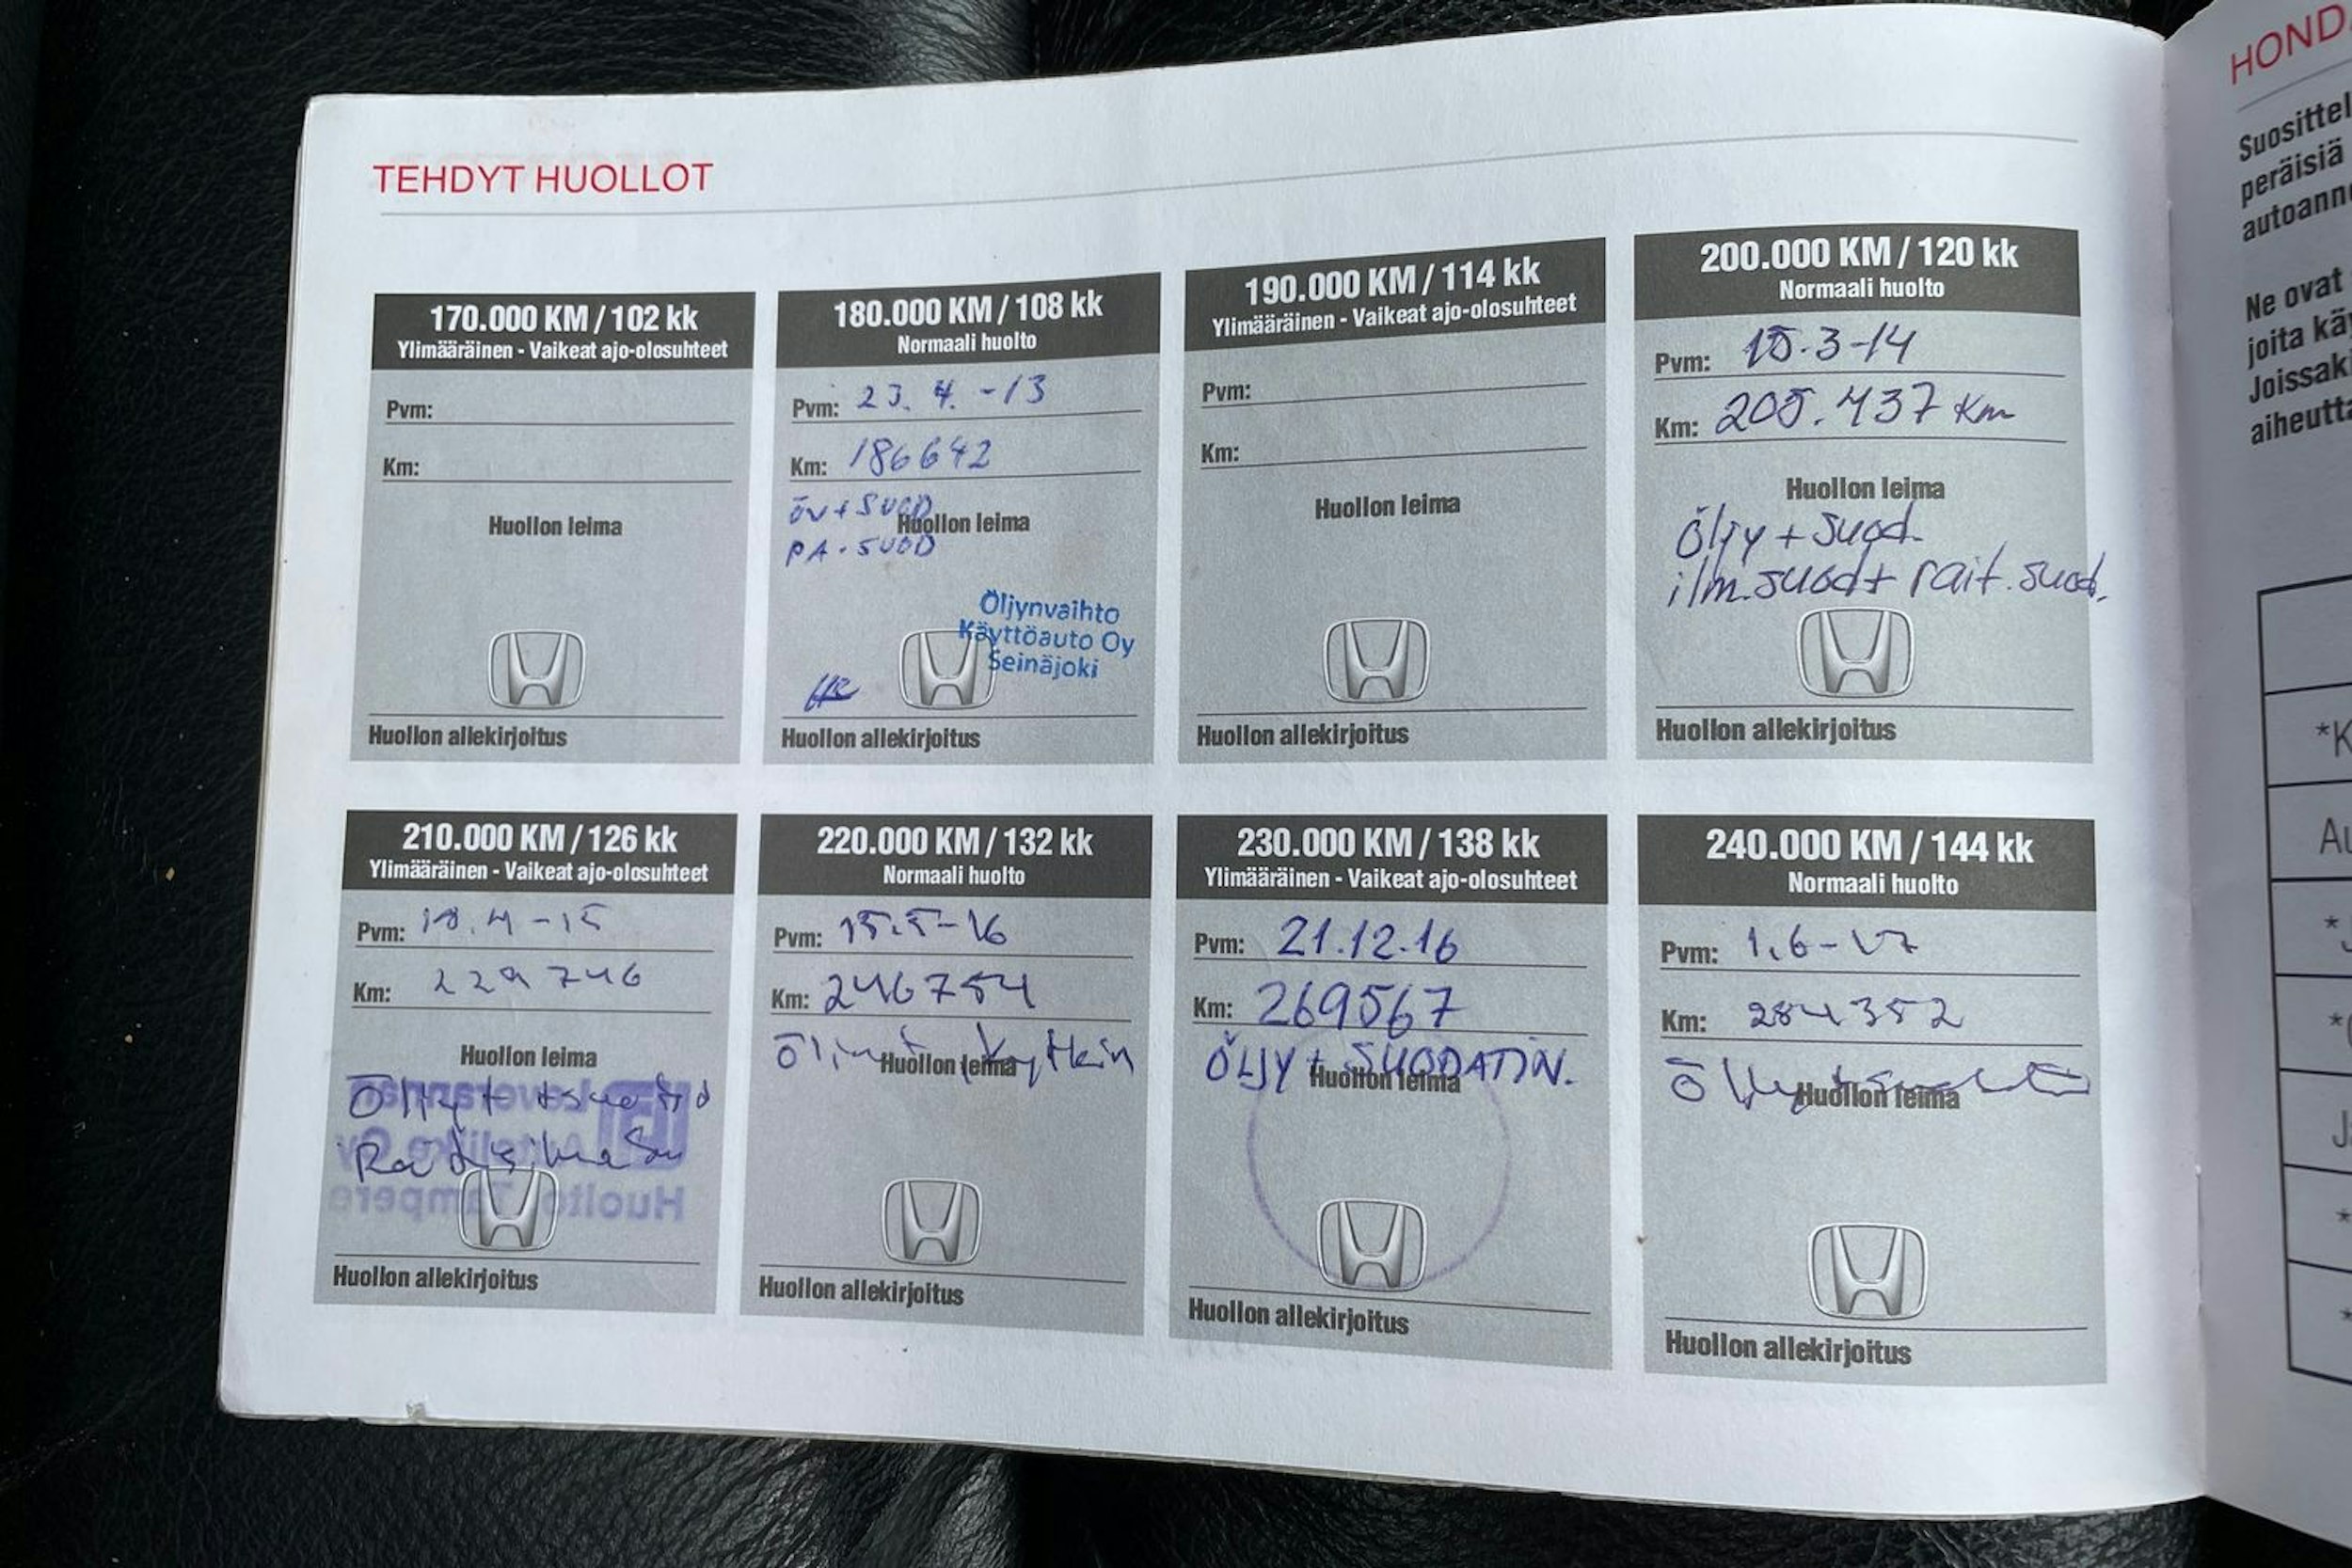 TEHDYT HUOLLOT
170.000 KM / 102 kk
Ylimääräinen - Vaikeat ajo-olosuhteet
Pvm:
Km:
Huollon leima
Huollon allekirjoitus
180.000 KM / 108 kk
Normaali huolto
Pvm: 23. 4. -13
Km: 186642
ÖV + SUOD
Huollon leima
PA. SUOD
Öljynvaihto
Käyttöauto Oy
Seinäjoki
Huollon allekirjoitus
190.000 KM / 114 kk
Ylimääräinen - Vaikeat ajo-olosuhteet
Pvm:
Km:
Huollon leima
Huollon allekirjoitus
200.000 KM / 120 kk
Normaali huolto
Pvm: 10.3-14
Km: 205.437 Km
Huollon leima
Öljy + suod.
ilm.suod+ rait.suod.
Huollon allekirjoitus
210.000 KM / 126 kk
Ylimääräinen - Vaikeat ajo-olosuhteet
Pvm: .4-15
Km: 229746
Huollon leima
Öljy +
Huolto Tampere
Huollon allekirjoitus
220.000 KM / 132 kk
Normaali huolto
Pvm: 15.5-16
Km: 246754
Huollon leima
Huollon allekirjoitus
230.000 KM / 138 kk
Ylimääräinen - Vaikeat ajo-olosuhteet
Pvm: 21.12.16
Km: 269567
ÖLJY + SUODATIN.
Huollon leima
Huollon allekirjoitus
240.000 KM / 144 kk
Normaali huolto
Pvm: 1.6-17
Km: 284352
Huollon leima
Huollon allekirjoitus
HOND
Suosittel
peräisiä
autoann
Ne ovat
joita kä
Joissak
aiheutt
*K
A